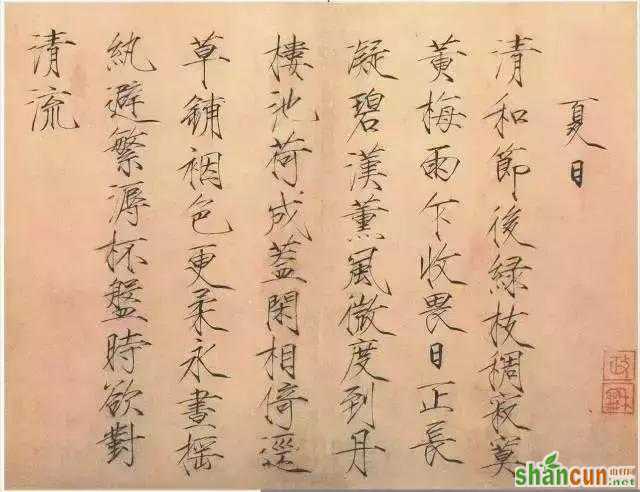 夏日
清和節後緑枝稠寂寞
黄梅雨乍收畏日正長
凝碧漢薰風微度到丹
樓池荷成蓋閑相倚逕
草鋪裀色更柔永晝摇
紈避繁溽杯盤時欲對
清流
shancun
山村网
.net